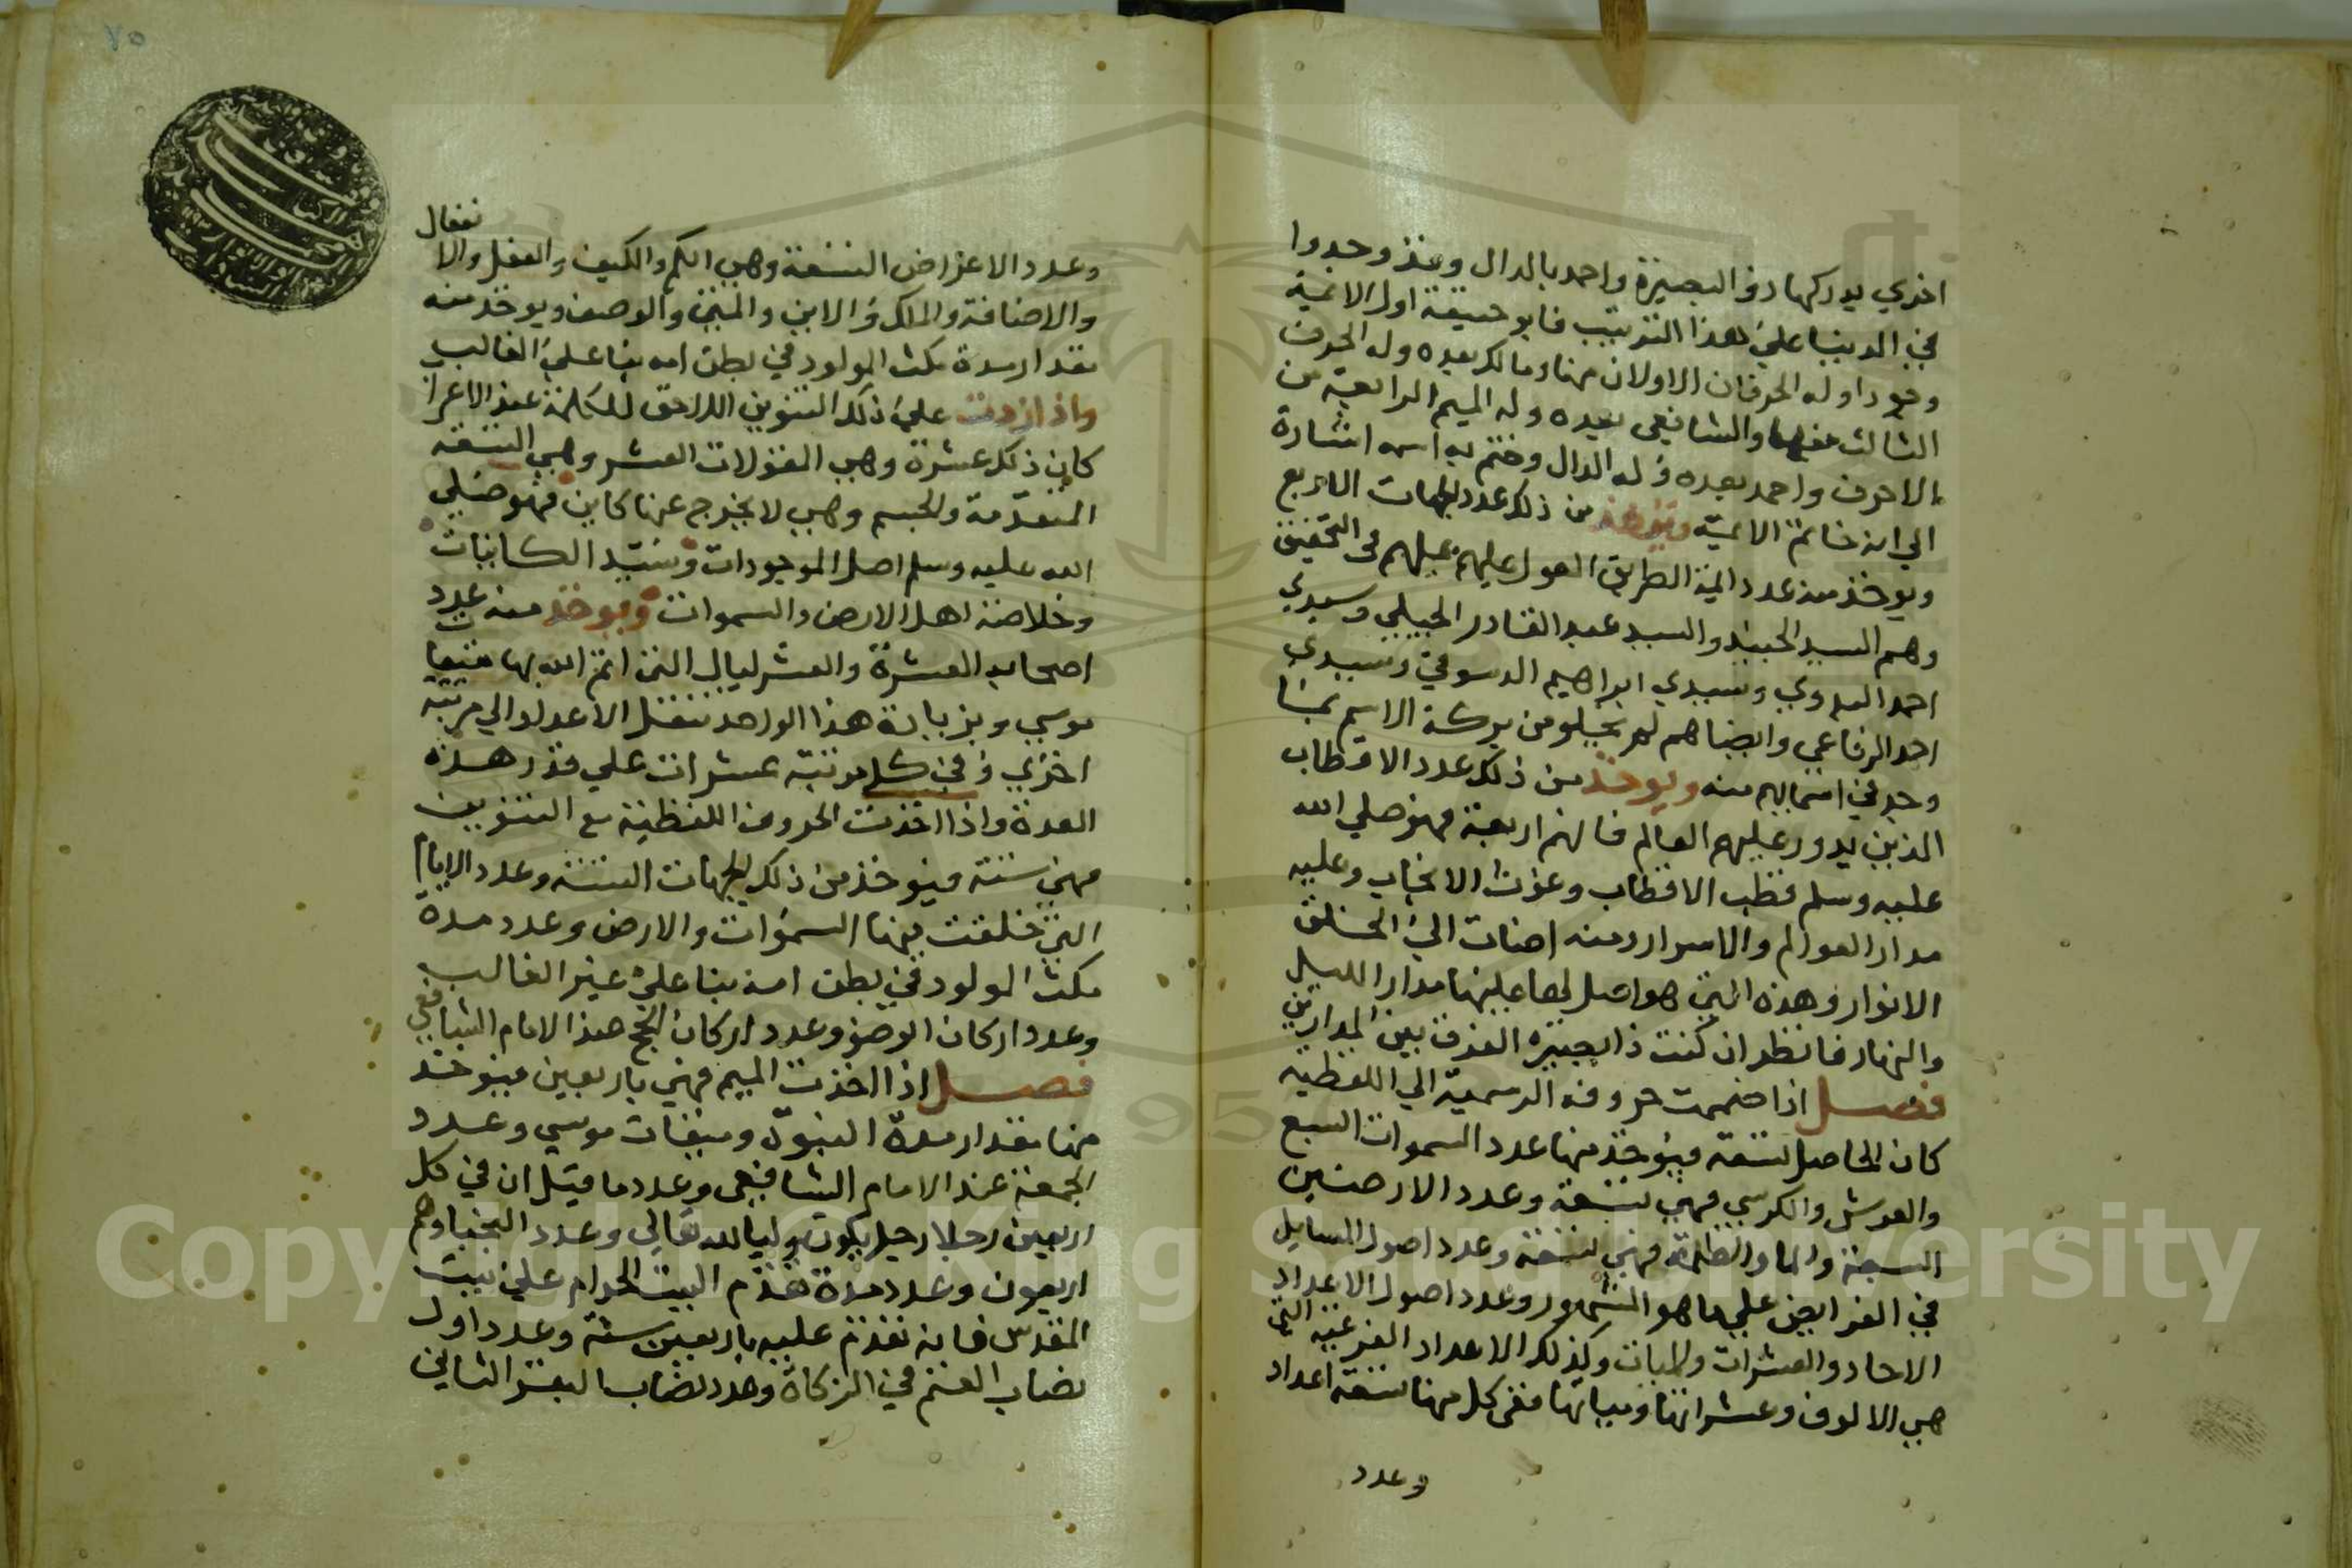 اخري يدركها ذو البصيرة واحمد بالدال وقد وجدوا
في الدنيا علي هذا الترتيب فابو حنيفة اول الائمة
وجودا وله الحرفان الاولان منها ومالك بعده وله الحرف
الثالث منها والشافعي بعده وله الميم الرابعة من
الاحرف واحمد بعده وله الدال وختم به اسمه اشارة
الي انه خاتم الائمة ويؤخذ من ذلك عدد الجهات الاربع
ويوخذ منه عدد ايمة الطريق المعول عليهم في التحقيق
وهم السيد الجنيد والسيد عبد القادر الجيلي وسيدي
احمد البدوي وسيدي ابراهيم الدسوقي وسيدي
احمد الرفاعي وايضا هم لم يخلو من بركة الاسم بما
وجد في اسمايهم منه ويوخذ من ذلك عدد الاقطاب
الذين يدور عليهم العالم فانهم اربعة فهو صلي الله
عليه وسلم قطب الاقطاب وغوث الانجاب وعليه
مدار العوالم والاسرار ومنه اضات الي الخلق
الانوار وهذه التي هو اصل لها عليها مدار الليل
والنهار فانظر ان كنت ذا بصيرة الفرق بين المدارين
فصل اذا ضممت حروفه الرسمية الي اللفظية
كان الحاصل تسعة فيؤخذ منها عدد السموات السبع
والعرش والكرسي فهي تسعة وعدد الارضين
السبعة والما والظلمة فهي تسعة وعدد اصول المسايل
في الفرايض علي ما هو المشهور وعدد اصول الاعداد
الاحاد والعشرات والميات وكذلك الاعداد الفرعية التي
هي الالوف وعشراتها ومياتها ففي كل منها تسعة اعداد
وعدد
٧٥
وعدد الاعراض التسعة وهي الكم والكيف والفعل والا
نفعال
والاضافة والملك والاين والمتي والوضع ويوخذ منه
مقدار مدة مكث المولود في بطن امه بنا علي الغالب
واذا زدت علي ذلك التنوين اللاحق للكلمة عند الاعرا
كان ذلك عشرة وهي المقولات العشر وهي التسعة
المتقدمة والجسم وهي لا يخرج عنها كاين فهو صلي
الله عليه وسلم اصل الموجودات وسيد الكاينات
وخلاصة اهل الارض والسموات ويوخذ منه عدد
اصحابه العشرة والعشر ليال التي اتم الله بها ميقات
موسي وبزيادة هذا الواحد تنتقل الاعداد الي مرتبة
اخري وفي كل مرتبة عشرات علي قدر هذه
العدة واذا اخذت الحروف اللفظية مع التنوين
فهي ستة فيوخذ من ذلك الجهات الستة وعدد الايام
التي خلقت فيها السموات والارض وعدد مدة
مكث المولود في بطن امه بنا علي غير الغالب
وعدد اركان الوضو وعدد اركان الحج عند الامام الشافعي
فصل اذا اخذت الميم فهي باربعين فيوخذ
منها مقدار مدة النبوة وميقات موسي وعدد
الجمعة عند الامام الشافعي وعدد ما قيل ان في كل
اربعين رجلا رجل يكون وليا لله تعالي وعدد النجبا وهم
اربعون وعدد مدة تقدم البيت الحرام علي بيت
المقدس فانه تقدم عليه باربعين سنة وعدد اول
نصاب الغنم في الزكاة وعدد نصاب البقر الثاني
Copyright © King Saud University